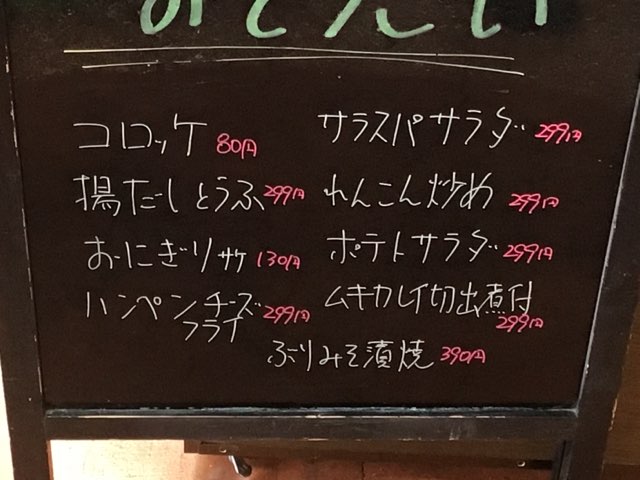 コロッケ 80円
揚だしとうふ 299円
おにぎりサケ 130円
ハンペンチーズ
フライ 299円
サラスパサラダ 299円
れんこん炒め 299円
ポテトサラダ 299円
ムキカレイ切出煮付
299円
ぶりみそ漬焼 390円